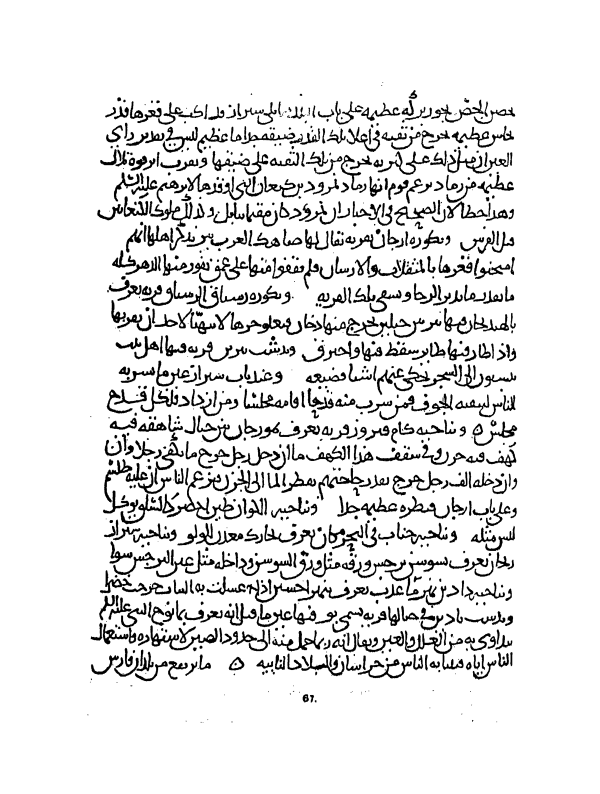 بحصن الجص بركة عظيمة على باب البلد يلي شيراز قد اكب على قعرها قدر
نحاس عظيمة يخرج من ثقبة في اعلا تلك القدر ضيقة جدا ما عظيم ليس في تقدير راى
العين ان مثل ذلك يخرج من تلك الثقبة على ضيقها وبقرب ابرقوه تلال
عظيمة من رماد يزعم قوم انها رماد نمرود بن كنعان التي اوقدها لابرهيم عليه السلم
وهذا خطا لان الصحيح في الاخبار ان نمرود كان مقيما ببابل وكذلك ملوك الكنعانيين
قبل الفرس وبكورة ارجان بقرية يقال لها صاهك العرب بير يذكر اهلها انهم
امتحنوا قعرها بالمثقلات والارسان فلم يقفوا منها على عمق يفور منها الدهر كله
ما بقدر ما يدير الرحا ويسقي تلك القرية وبكورة رستاق الرستاق قرية تعرف
بالهنديجان فيها بير بين جبلين يخرج منها دخان فيعلو حرها لا يتهيا لاحد ان يقربها
واذا طار فيها طاير سقط فيها واحترق وبدشت بارين قرية فيها اهل بيت
ينسبون الى السحر يحكى عنهم اشيا فضيعة وعند باب شيراز عين ما يشربه
الناس لتنقية الجوف فمن شرب منه قدحا اقامه مجلسا ومن ازداد فلكل قدح
مجلس وبناحية كام فيروز قرية تعرف بمورجان بين جبال شاهقة فيه
كهف فيه جرن وفي سقف هذا الكهف ما ان دخل رجل خرج ما يكفي رجلا وان
وان دخله الف رجل خرج بقدر حاجتهم يقطر الما الى الجرن يزعم الناس ان عليه طلسم
وعلى باب ارجان قنطرة عظيمة جدا وبناحية الاكوان طين اخضر كالسلق يوكل
ليس مثله وبناحية جناب في البحر مكان يعرف بخارك معدن اللولو وبناحية شيراز
ريحان يعرف بسوسن نرجس ورقه مثل ورق السوسن وداخله مثل عين النرجس سوا
وبناحية داذين نهر ما عذب يعرف بنهر اخشين اذا غسلت به الثياب خرجت خضرا
وبدشت بارين في جبالها قرية تسمى بور فيها عين ما قيل انه تعرف بما نوح النبي عليه السلم
يتداوى به من العلل والعين ويقال انه ربما حمل منه الى حدود الصين لاشتهاره واستعمال
الناس اياه به الناس من خراسان والبلاد النايية ما يرتفع من بلدان فارس
67.